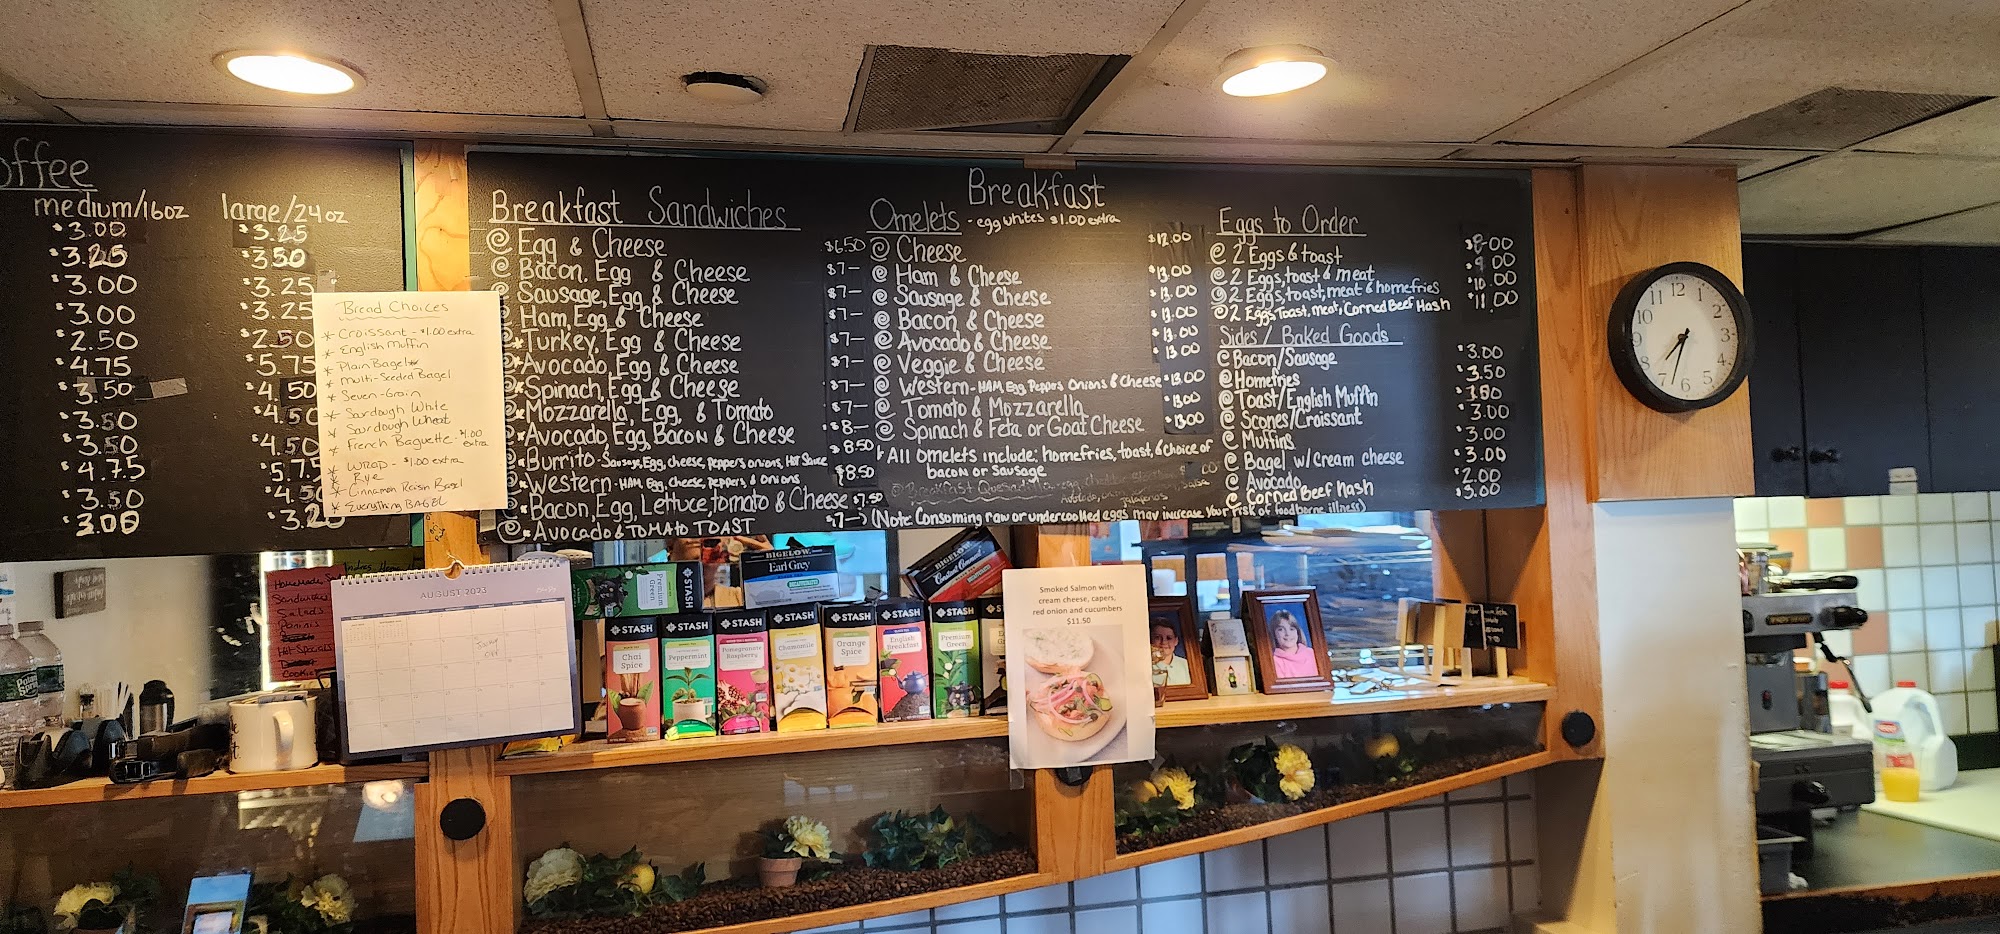 offee
medium/16oz large/24oz
$3.00 $3.25
$3.25 $3.50
$3.00 $3.25
$3.00 $3.25
$2.50 $2.50
$4.75 $5.75
$3.50 $4.50
$3.50 $4.50
$3.50 $4.50
$4.75 $5.75
$3.50 $4.50
$3.00 $3.25
Bread Choices
* Croissant - $1.00 extra
* English Muffin
* Plain Bagel
* Multi-Seeded Bagel
* Seven-Grain
* Sourdough White
* Sourdough Wheat
* French Baguette - $1.00 extra
* WRAP - $1.00 extra
* Rye
* Cinnamon Raisin Bagel
* Everything BAGEL
Breakfast
Breakfast Sandwiches
@ Egg & Cheese $6.50
@ Bacon, Egg & Cheese $7-
@ Sausage, Egg & Cheese $7-
@ Ham, Egg & Cheese $7-
* Turkey, Egg & Cheese $7-
* Avocado, Egg & Cheese $7-
* Spinach, Egg & Cheese $7-
* Mozzarella, Egg, & Tomato $7-
* Avocado, Egg, Bacon & Cheese $8-
* Burrito - Sausage, Egg, cheese, peppers onions, Hot Sauce $8.50
* Western - HAM, Egg, Cheese, Peppers, & Onions $8.50
* Bacon, Egg, Lettuce, tomato & Cheese $7.50
* Avocado & TOMATO TOAST $7-
Omelets - egg whites $1.00 extra
@ Cheese $12.00
@ Ham & Cheese $13.00
@ Sausage & Cheese $13.00
@ Bacon & Cheese $13.00
@ Avocado & Cheese $13.00
@ Veggie & Cheese $13.00
@ Western - HAM, Egg, Peppers Onions & Cheese $13.00
@ Tomato & Mozzarella $13.00
@ Spinach & Feta or Goat Cheese $13.00
* All omelets include: homefries, toast, & choice of
bacon or sausage
@ Breakfast Quesadilla
Jalapeños
(Note: Consoming raw or undercooked eggs may increase your risk of foodborne illness)
Eggs to Order
@ 2 Eggs & toast $8.00
@ 2 Eggs, toast & meat $9.00
@ 2 Eggs, toast, meat & homefries $10.00
@ 2 Eggs Toast, meat, Corned Beef Hash $11.00
Sides / Baked Goods
@ Bacon/Sausage $3.00
@ Homefries $3.50
@ Toast/English Muffin
@ Scones/Croissant $3.00
@ Muffins $3.00
@ Bagel w/cream cheese $3.00
@ Avocado $2.00
@ Corned Beef Hash $5.00
12
1
2
3
4
5
6
7
8
9
10
11
Homemade
Sandwiches
Salads
Paninis
Hot Specials
Cookies
AUGUST 2023
BIGELOW
Earl Grey
BIGELOW
Constant Comment
Premium Green
STASH
STASH
Chai Spice
STASH
Peppermint
STASH
Pomegranate Raspberry
STASH
Chamomile
STASH
Orange Spice
STASH
English Breakfast
STASH
Premium Green
Smoked Salmon with
cream cheese, capers,
red onion and cucumbers
$11.50